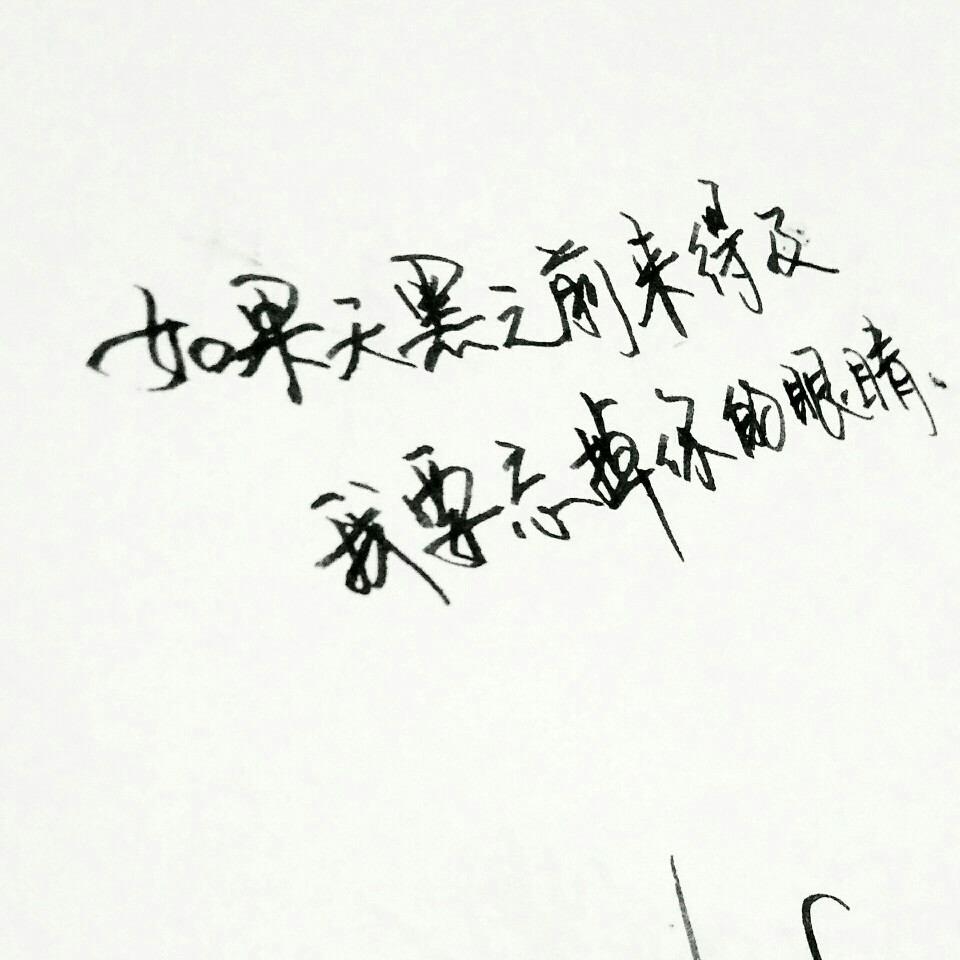 如果天黑之前来得及
我要忘掉你的眼睛.